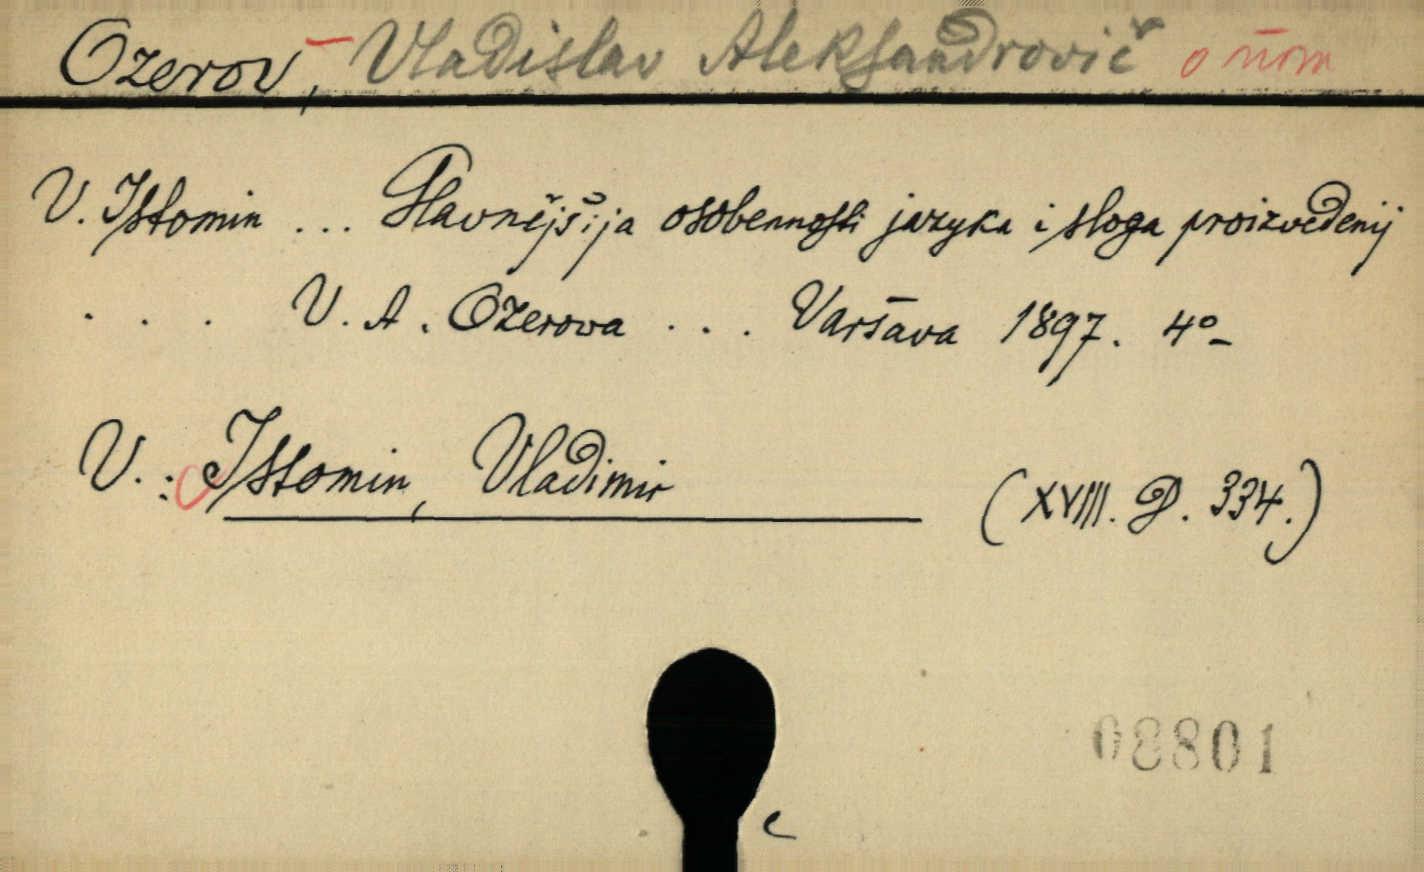 Ozerov, Vladislav Aleksandrovič o nom
V. Istomin ... Glavnějšija osobennosti jazyka i sloga proizvedenij
. . . V. A. Ozerova ... Varšava 1897. 4°
V.: Istomin, Vladimir (XVIII. D. 334.)
08801
c